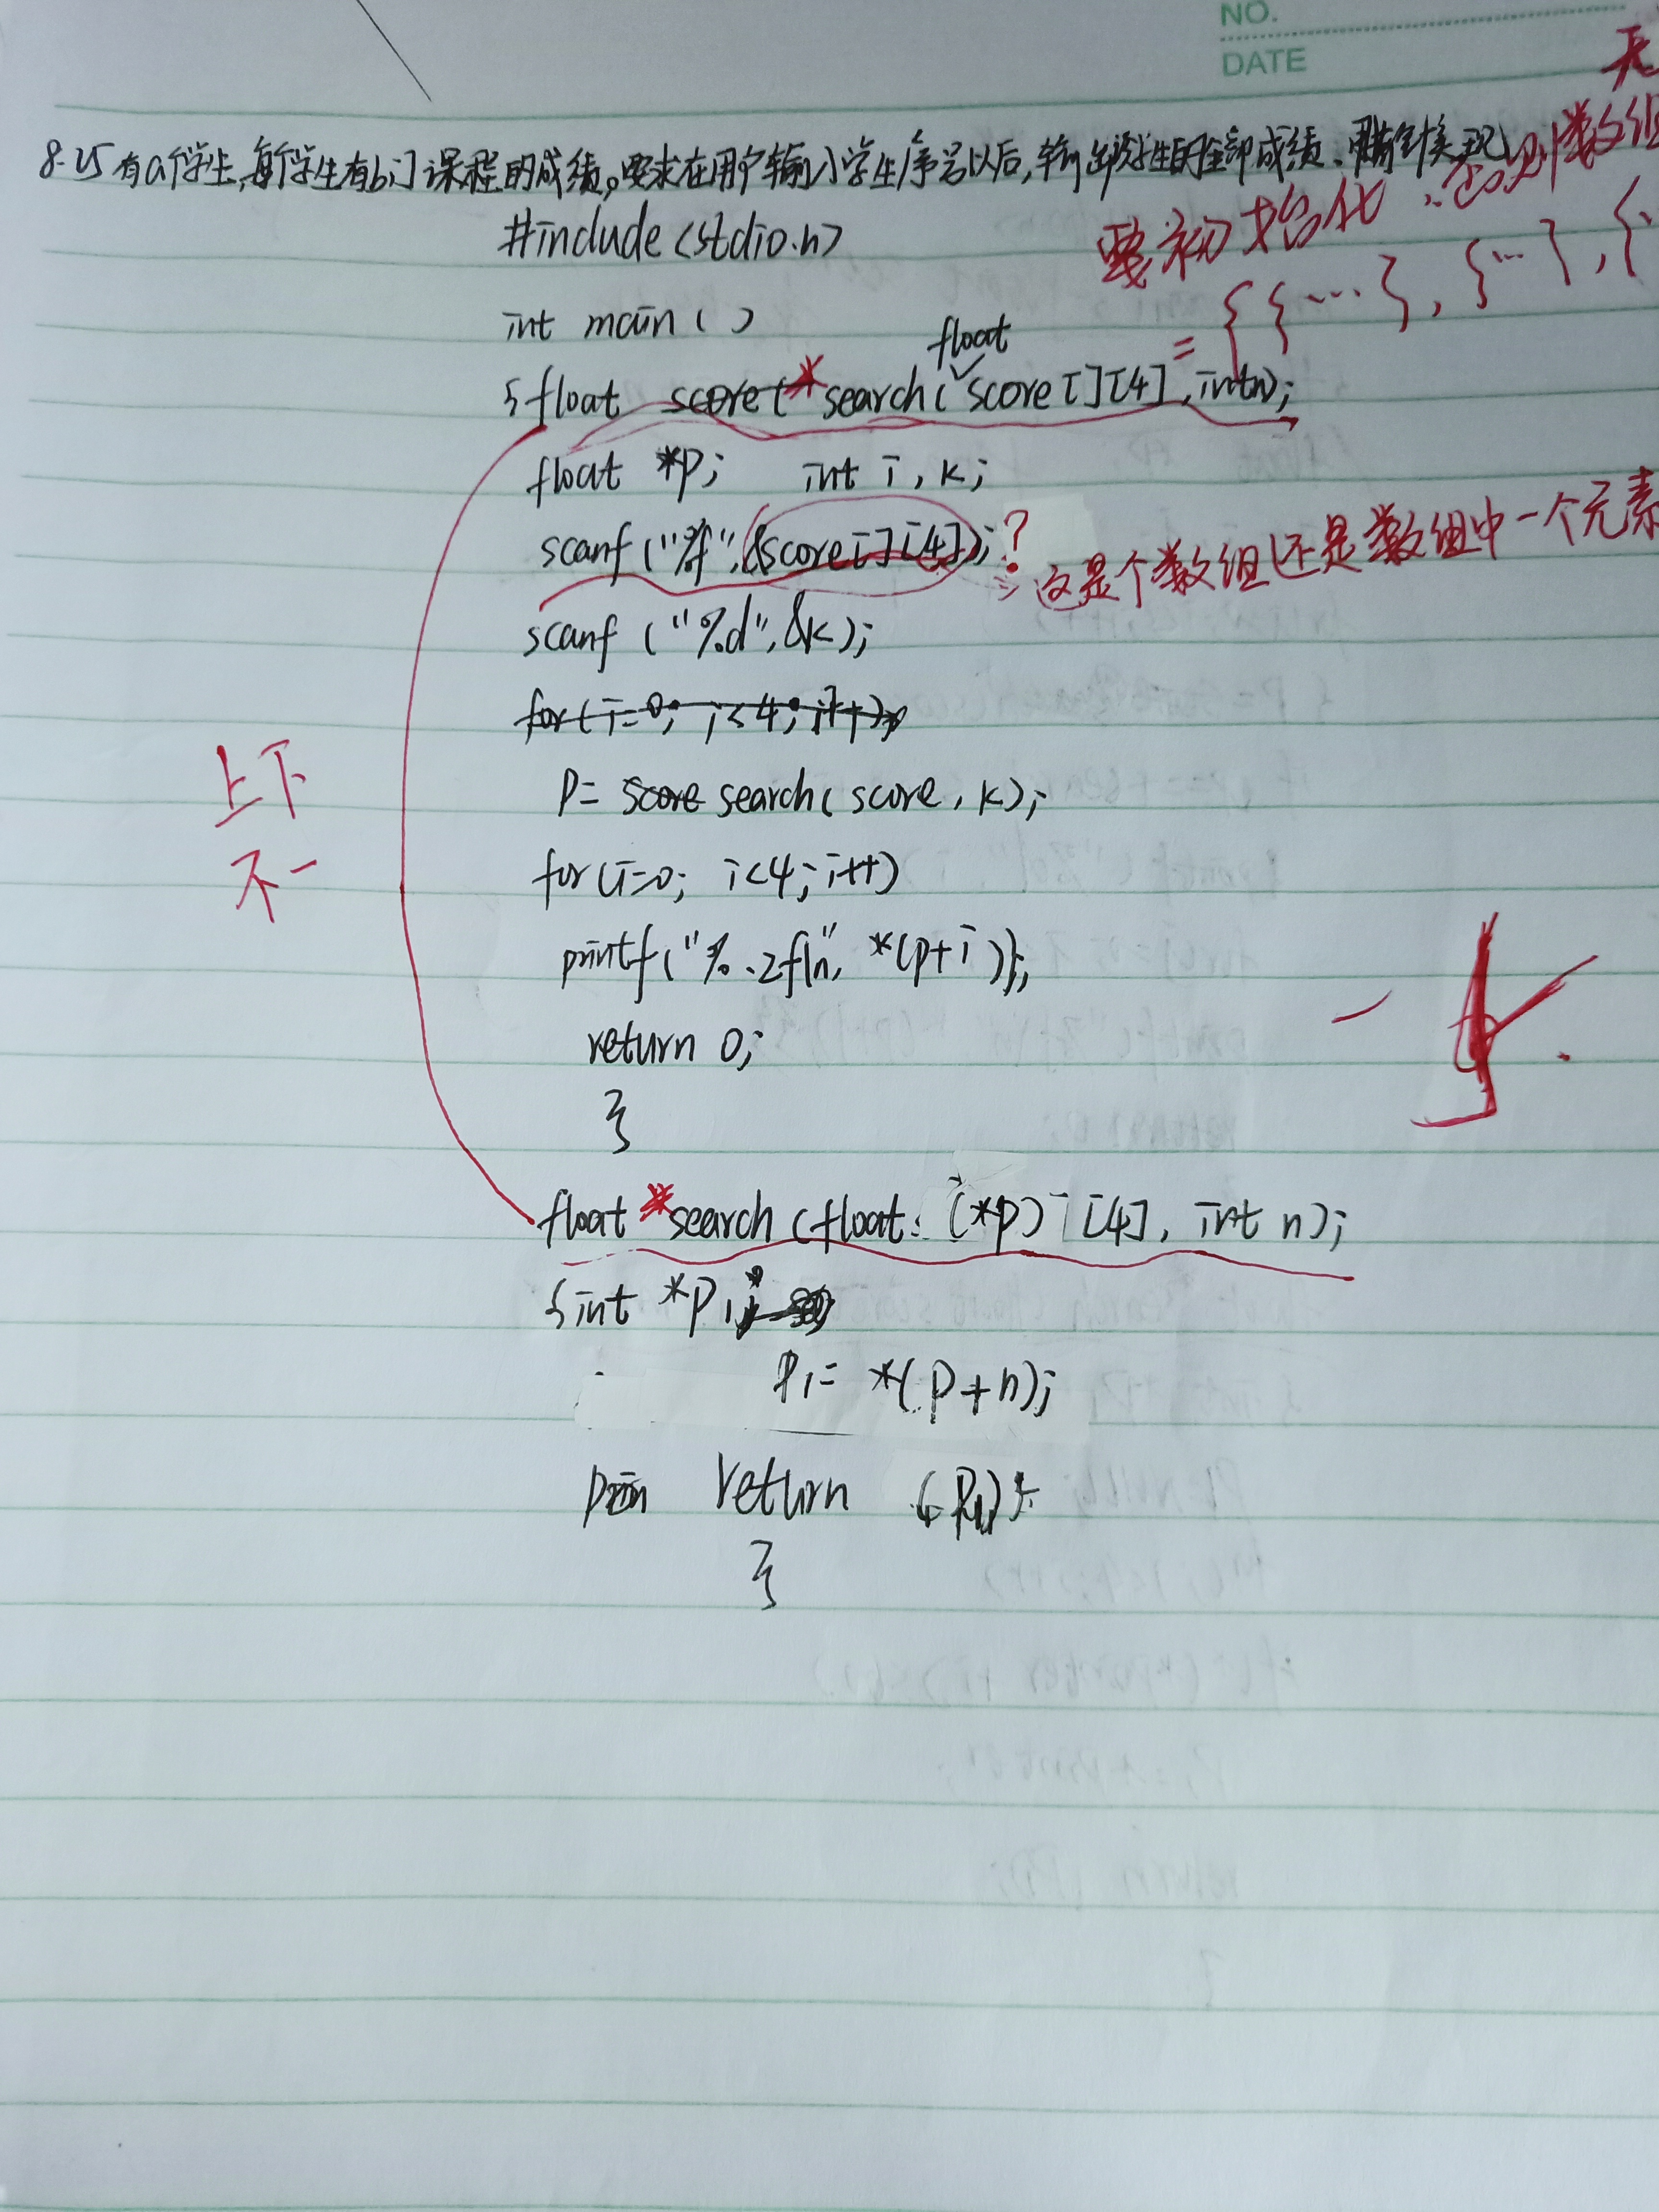 NO.
DATE
无
8.25 有a个学生,每个学生有b门课程的成绩。要求在用户输入学生序号以后,输出该学生的全部成绩、用指针实现
要初始化 ∵否则数组
#include<stdio.h>
= { {…}, {…}, {
int main ( )
float
{float *search( score[][4], int n);
float *p; int i, k;
scanf("%f",&score[][4]); ?
这是个数组还是数组中一个元素
scanf ("%d",&k);
for(i=0; i<4; i++)
上下
不一
p= score search( score, k);
for(i=0; i<4; i++)
printf("%.2f\n", *(p+i));
return 0;
}
float *search (float (*p) [4], int n);
{int *p1;
p1= *(p+n);
return (p1);
}